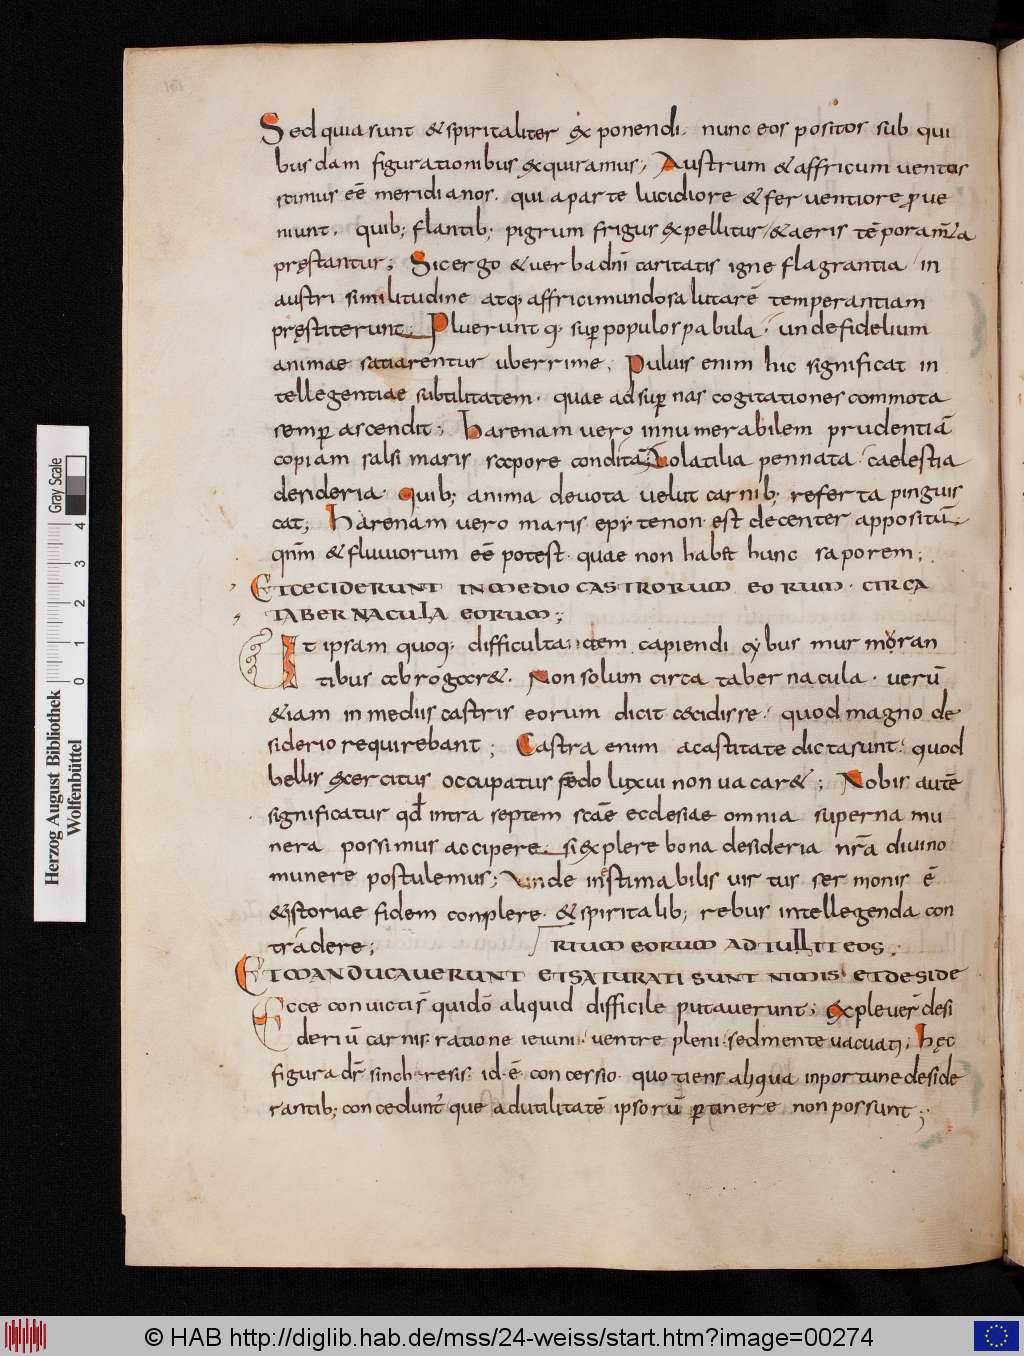 Sed quia sunt & spiritaliter exponendi. nunc eos positos sub qui
bus dam figurationibus exquiramus; Austrum & affricum ventos
stimus eē meridianos. qui a parte lucidiore & ferventiore ꝓve
niunt. quib; flantib; pigrum frigus expellitur & aeris tēpora
pręstantur; Sic ergo & verba dn̄i caritatis igne flagrantia in
austri similitudine atq; affrici mundo salutarē temperantiam
pręstiterunt; Pluerunt q; sup populos pabula. unde fidelium
animae satiarentur uberrime; Pulvis enim hic significat in
tellegentiae subtilitatem. quae ad supnas cogitationes commota
semp ascendit; Harenam vero innumerabilem prudentiā
copiam salsi maris sapore conditā; Volatilia pennata caelestia
desideria. Quib; anima devota velut carnib; referta pinguis
cat; Harenam vero maris epitenon est decenter appositū
qm̄ & fluviorum eē potest. quae non habet hunc saporem;
ET CECIDERUNT IN MEDIO CASTRORUM EORUM. CIRCA
TABERNACULA EORUM;
It ipsam quoq; difficultatem capiendi cybus murmoran
tibus abrogar&. Non solum circa tabernacula. verū
&iam in mediis castris eorum dicit cecidisse. quod magno de
siderio requirebant; Castra enim a castitate dicta sunt. quod
bellis exercitus occupatus foedo luxui non vacar&; Nobis autē
significatur qđ intra septem scāe ecclesiae omnia superna mu
nera possimus accipere. si explere bona desideria nr̄a divino
munere postulemus; Unde inestimabilis virtus sermonis ē
& istoriae fidem complere. & spiritalib; rebus intellegenda con
tradere;
RIUM EORUM ADTULIT EOS.
ET MANDUCAVERUNT ET SATURATI SUNT NIMIS. ET DESIDE
Ecce convictis quidē aliquid difficile putaverunt; Expleveř desi
deriū carnis. ratione ieiuni. ventre pleni. sed mente vacuati; Hęc
figura dr̄ sinchoresis. id. ē. concessio. quotiens aliqua inportune deside
rantib; conceduntur que ad utilitatē ipsorū ptinere non possunt;
Herzog August Bibliothek
Wolfenbüttel
Gray Scale
0 1 2 3 4
© HAB http://diglib.hab.de/mss/24-weiss/start.htm?image=00274